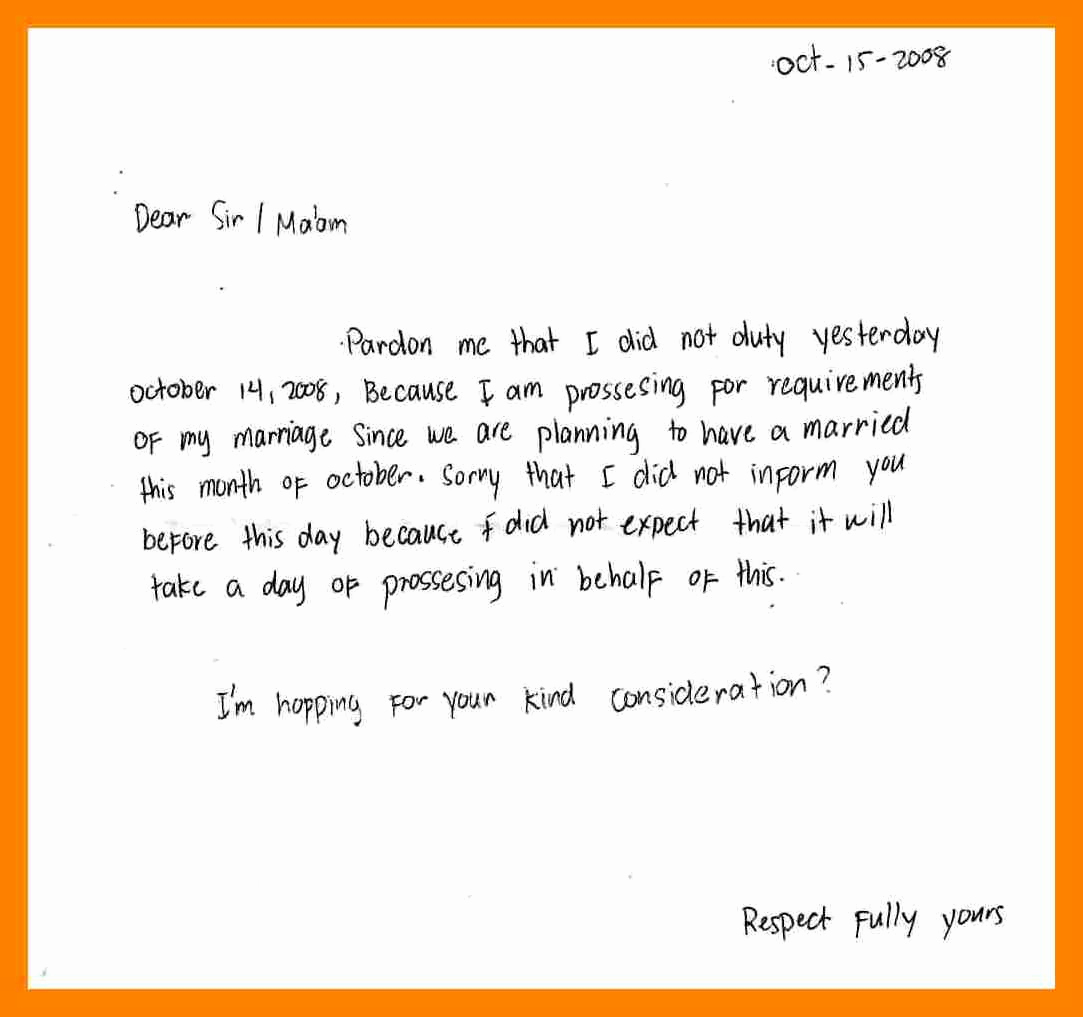 Oct - 15 - 2008
Dear Sir / Ma'am
Pardon me that I did not duty yesterday
October 14, 2008, Because I am prossesing for requirements
OF my marriage Since we are planning to have a married
this month of october. Sorry that I did not inform you
before this day because I did not expect that it will
take a day of prossesing in behalf of this.
I'm hopping for your kind consideration?
Respect Fully yours